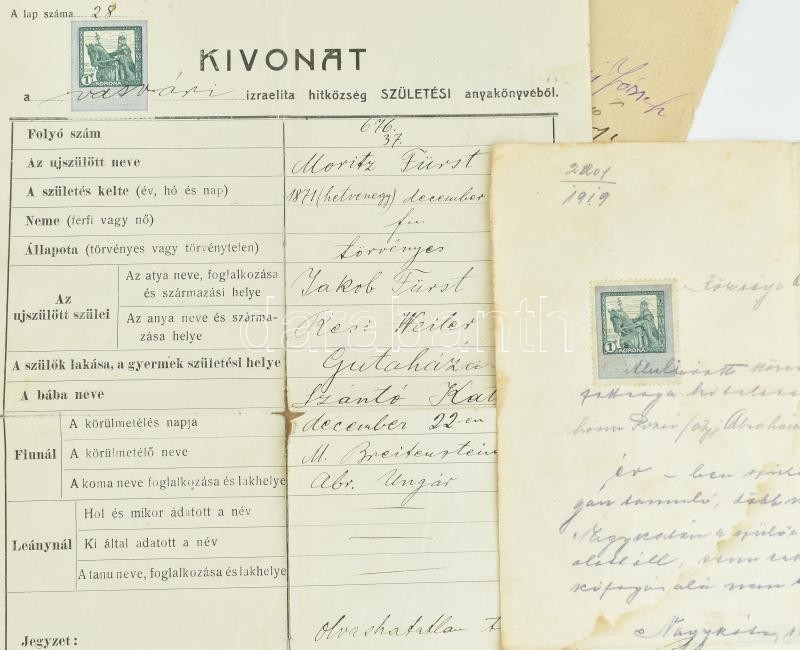 A lap száma 28
KIVONAT
a vasvári izraelita hitközség SZÜLETÉSI anyakönyvéből.
Folyó szám 676. 37.
Az ujszülött neve Moritz Fürst
A születés kelte (év, hó és nap) 1871 (hetvenegy) december
Neme (férfi vagy nő) fiu
Állapota (törvényes vagy törvénytelen) törvényes
Az ujszülött szülei
Az atya neve, foglalkozása és származási helye Jakob Fürst
Az anya neve és származása helye Resi Weiler
A szülők lakása, a gyermek születési helye Gutaháza
A bába neve Szántó Kat
Fiunál
A körülmetélés napja december 22-én
A körülmetélő neve M. Breitenstein
A koma neve foglalkozása és lakhelye Abr. Ungár
Leánynál
Hol és mikor adatott a név
Ki által adatott a név
A tanu neve, foglalkozása és lakhelye
Jegyzet: olvashatatlan
1 KORONA
2201
1919
1 KORONA
Abraham
év – ben szül
gán tanuló, több
Nagykátán a szülő
alatt áll,
kifogás alá nem
Nagykáta,
darabanth